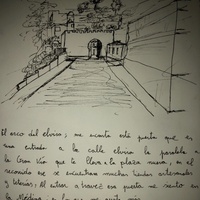 El arco del elvira; me encanta esta puerta que es
una entrada a la calle elvira la paralela a
la Gran Vía que te lleva a la plaza nueva, en el
recorrido ese se encuentran muchas tiendas artesanales
y teterías; Al entrar a través esa puerta me siento en
la